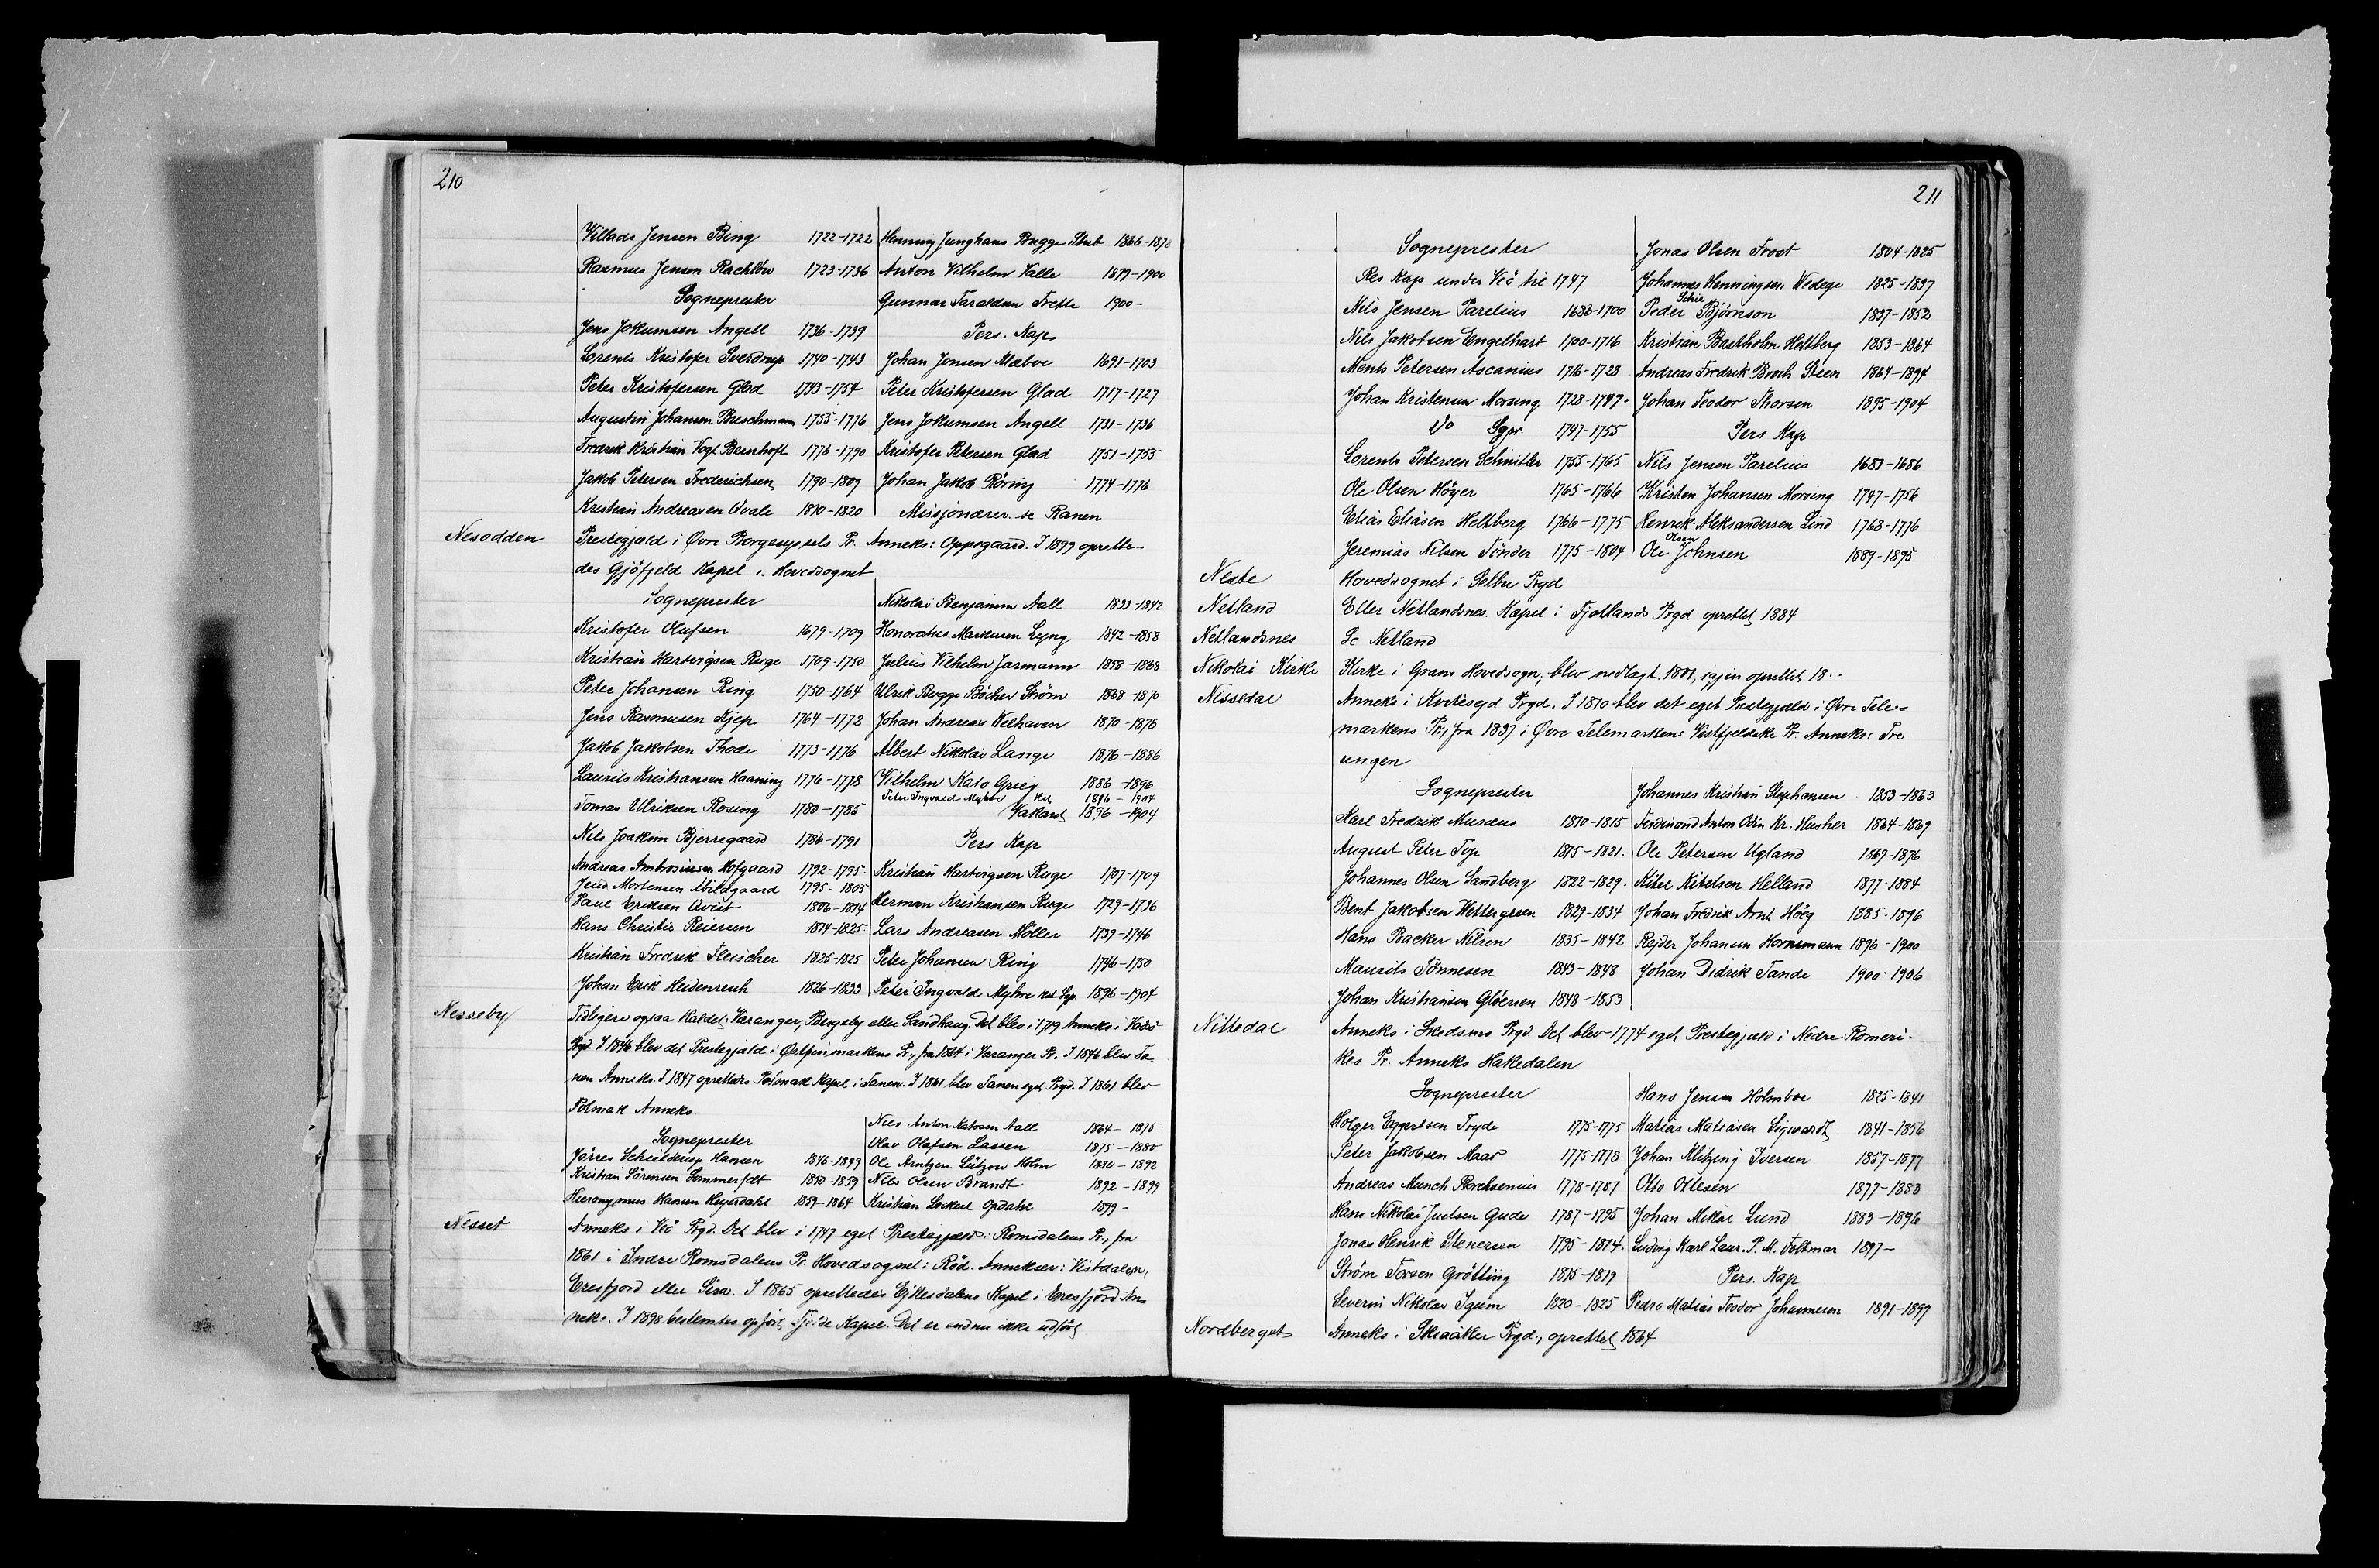 210
Villads Jensen Bing 1722-1722
Rasmus Jensen Rachløw 1723-1736
Sogneprester
Jens Jokumsen Angell 1736-1739
Lorents Kristofer Sverdrup 1740-1743
Peter Kristofersen Glad 1743-1754
Augustin Johansen Buschmann 1755-1776
Fredrik Kristian Vogt Bernhoft 1776-1790
Jakob Petersen Frederichsen 1790-1809
Kristian Andreasen Qvale 1810-1820
Henning Junghans Bugge Stub 1866-1878
Anton Vilhelm Valle 1879-1900
Gunnar Taraldsen Trette 1900-
Pers. Kap
Johan Jonsen Mæboe 1691-1703
Peter Kristofersen Glad 1717-1727
Jens Jokumsen Angell 1731-1736
Kristofer Petersen Glad 1751-1755
Johan Jakob Røring 1774-1776
Missjonærer se Ranen
Nesodden Prestegjæld i Øvre Borgesyssels Pr. Anneks: Oppegaard. I 1899 oprette-
des Gjøfjeld Kapel i Hovedsognet
Sogneprester
Kristofer Olufsen 1679-1709
Kristian Hartvigsen Ruge 1709-1750
Peter Johansen Ring 1750-1764
Jens Rasmusen Kjep 1764-1772
Jakob Jakobsen Thode 1773-1776
Laurits Kristiansen Haaning 1776-1778
Tomas Ulriksen Rosing 1780-1785
Nils Joakim Bjerregaard 1786-1791
Andreas Ambrosiussen Hofgaard 1792-1795
Jens Mortensen Abildgaard 1795-1805
Paul Eriksen Qvist 1806-1814
Hans Christie Reiersen 1814-1825
Kristian Fredrik Fleischer 1825-1825
Johan Erik Heidenreich 1826-1833
Nikolai Benjamin Aall 1833-1842
Honoratus Markusen Lyng 1842-1858
Julius Vilhelm Jarmann 1858-1868
Ulrik Bugge Bøcher Strøm 1868-1870
Johan Andreas Welhaven 1870-1876
Albert Nikolai Lange 1876-1886
Vilhelm Kato Grieg 1886-1896
Peter Ingvald Myhre Kst 1896-1904
Vakant 1896-1904
Pers Kap
Kristian Hartvigsen Ruge 1707-1709
Herman Kristiansen Ruge 1729-1736
Lars Andreasen Møller 1739-1746
Peter Johansen Ring 1746-1750
Peter Ingvald Myhre kst Sgp. 1896-1904
Nesseby Tidligere ogsaa kaldet: Varanger, Bergeby eller Sandhaug. Det blev i 1719 Anneks i Vadsø
Prgd. I 1846 blev det Prestegjæld i Østfinmarkens Pr., fra 1864 i Varanger Pr. I 1846 blev Ta-
nen Anneks. I 1847 oprettedes Polmak Kapel i Tanen. I 1861 blev Tanen eget Prgd. I 1861 blev
Polmak Anneks
Sogneprester
Jørres Schielderup Hansen 1846-1849
Kristian Sørensen Sommerfelt 1850-1859
Hieronymus Hansen Heyerdahl 1859-1864
Nils Anton Katosen Aall 1864-1875
Olav Olafsen Lassen 1875-1880
Ole Arntzen Lützow Holm 1880-1892
Nils Olsen Brandt 1892-1899
Kristian Lockert Opdahl 1899-
Nesset Anneks i Veø Prgd. Det blev i 1747 eget Prestegjæld i Romsdalens Pr., fra
1861 i Indre Romsdalens Pr. Hovedsognet: Rød. Annekser: Vistdalen,
Eresfjord eller Sira. I 1865 oprettedes Eikesdalens Kapel i Eresfjord An-
neks. I 1898 bestemtes opført Tjelde Kapel. Det er endnu ikke udført
211
Sogneprester
Res Kap under Veø til 1747
Nils Jensen Parelius 1686-1700
Nils Jakobsen Engelhart 1700-1716
Ments Petersen Ascanius 1716-1728
Johan Kristensen Morsing 1728-1747
Do Sgpr. 1747-1755
Lorents Petersen Schnitler 1755-1765
Ole Olsen Høyer 1765-1766
Elias Eliasen Heltberg 1766-1775
Jeremias Nilsen Tønder 1775-1804
Jonas Olsen Frost 1804-1825
Johannes Henningsen Wedege 1825-1837
Schie
Peder Bjørnson 1837-1852
Kristian Bastholm Heltberg 1853-1864
Andreas Fredrik Broch Steen 1864-1894
Johan Teodor Thorsen 1895-1904
Pers Kap
Nils Jensen Parelius 1681-1686
Kristen Johansen Morsing 1747-1756
Henrik Aleksandersen Lind 1768-1776
Olsen
Ole Johnsen 1889-1895
Neste Hovedsognet i Selbu Prgd
Netland Eller Netlandsnes. Kapel i Fjotlands Prgd oprettet 1884
Netlandsnes Se Netland
Nikolai Kirke Kirke i Grans Hovedsogn, blev nedlagt 1801, igjen oprettet 18..
Nissedal Anneks i Kvitesejd Prgd. I 1810 blev det eget Prestegjæld i Øvre Tele-
markens Pr., fra 1837 i Øvre Telemarkens Vestfjeldske Pr. Anneks: Tre
ungen
Sogneprester
Karl Fredrik Musæus 1810-1815
August Peter Top 1815-1821.
Johannes Olsen Sandberg 1822-1829.
Bent Jakobsen Wettergreen 1829-1834
Hans Backer Nilsen 1835-1842
Maurits Tønnesen 1843-1848
Johan Kristiansen Gløersen 1848-1853
Johannes Kristian Stephansen 1853-1863
Ferdinand Anton Odin Kr. Husher 1864-1869
Ole Petersen Ugland 1869-1876
Kitel Kitelsen Helland 1877-1884
Johan Fredrik Arnt Höeg 1885-1896
Rejder Johansen Hornemann 1896-1900
Johan Didrik Tande 1900-1906
Nittedal Anneks i Skedsmo Prgd. Det blev 1774 eget Prestegjæld i Nedre Romeri-
kes Pr. Anneks Hakedalen
Sogneprester
Holger Eggertsen Tryde 1775-1775
Peter Jakobsen Aaas 1775-1778
Andreas Munch Rochsenius 1778-1787
Hans Nikolai Juelsen Gude 1787-1795
Jonas Henrik Stenersen 1795-1814.
Strøm Torsen Grøtting 1815-1819
Severin Nikolai Igum 1820-1825
Hans Jensen Holmboe 1825-1841
Matias Matiasen Sigwardt 1841-1856
Johan Klitzing Iversen 1857-1877
Otto Ottesen 1877-1883
Johan Mikal Lund 1883-1896
Ludvig Karl Laur. P. M. Foltmar 1897-
Pers. Kap
Pedro Matias Teodor Johannesen 1891-1897
Nordberget Anneks i Skiaaker Prgd., oprettet 1864